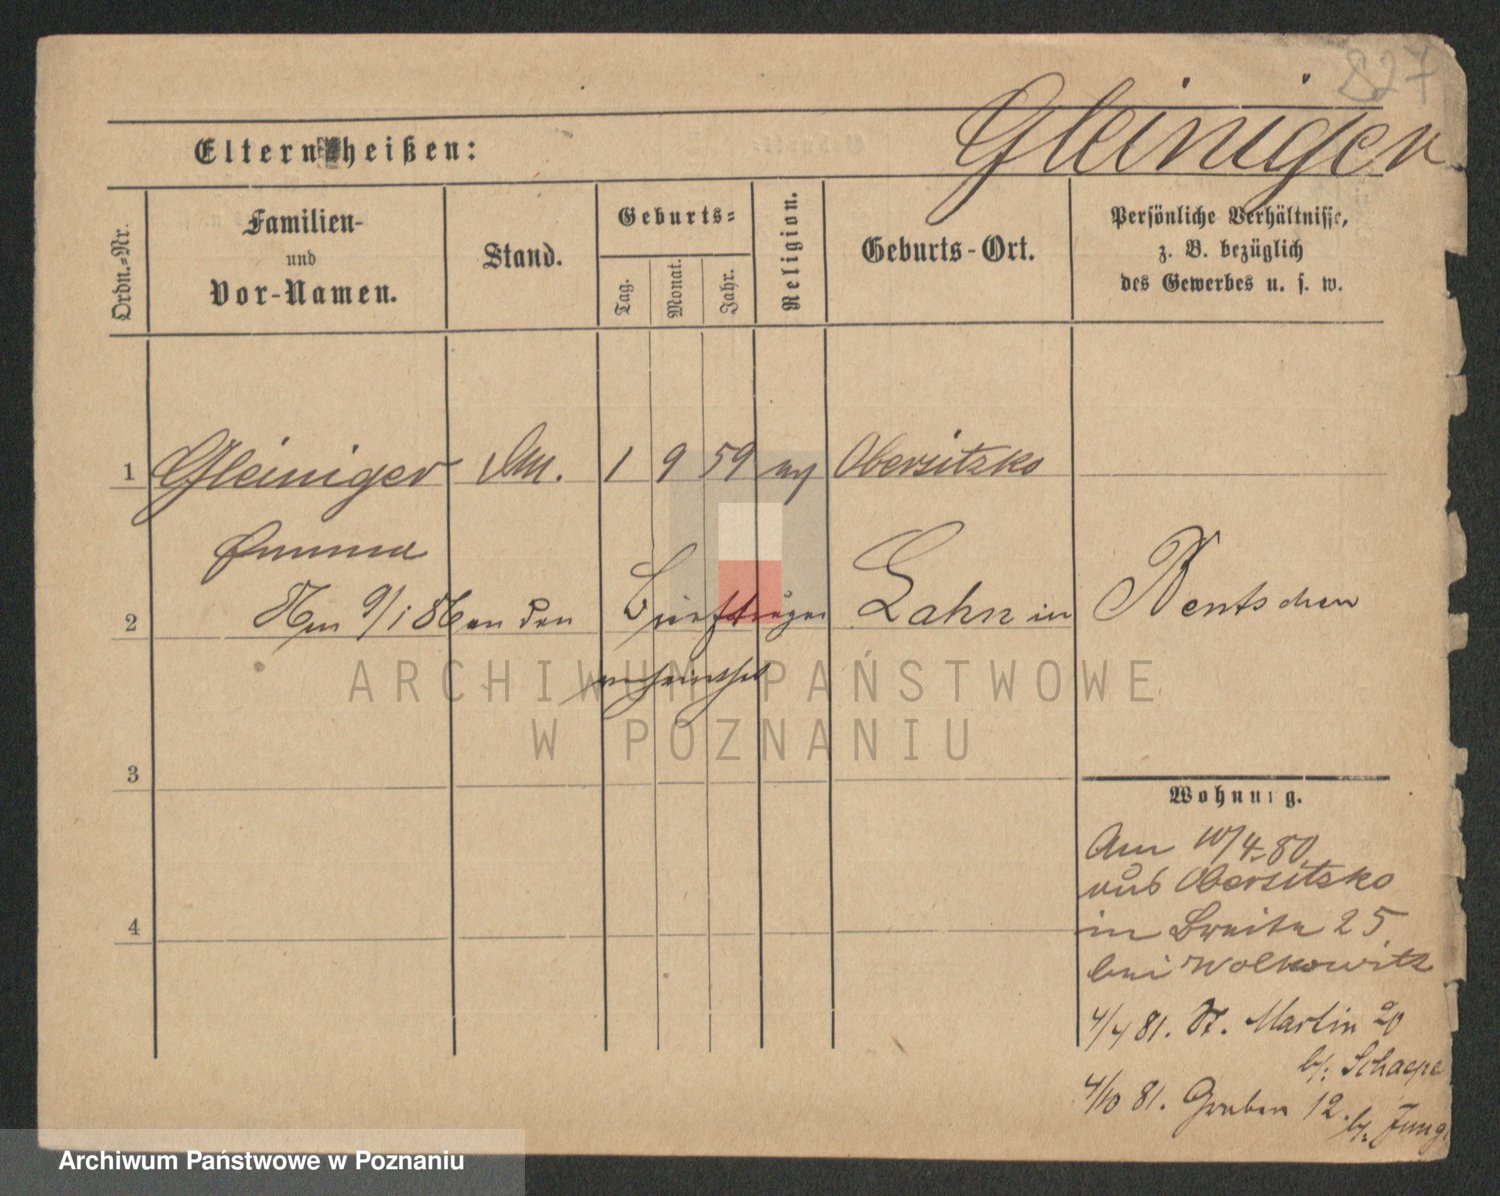 827
Gleiniger
Eltern heißen:
Ordn.-Nr.
Familien-
und
Vor-Namen.
Stand.
Geburts-
Tag.
Monat.
Jahr.
Religion.
Geburts-Ort.
Persönliche Verhältnisse,
z. B. bezüglich
des Gewerbes u. s. w.
1 Gleiniger 1 9 59 Obersitzko
Emma
2 9/1 86 an den Lahn in Bentschen
verheirathet
3
4
Wohnung.
Am 10/4. 80
aus Obersitzko
in Breite 25
bei Wolkowitz
4/4 81. St. Martin 20
b/: Schaepe
4/10 81. Graben 12.
b/: Jung
ARCHIWUM PAŃSTWOWE
W POZNANIU
Archiwum Państwowe w Poznaniu